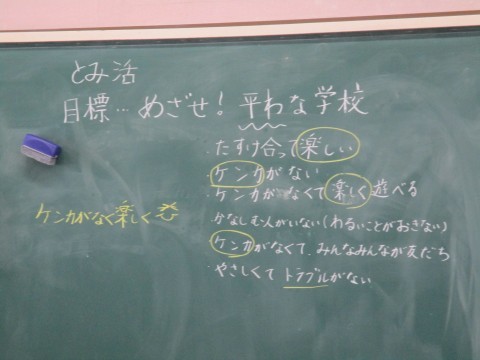 とみ活
目標…めざせ!平わな学校
・たすけ合って楽しい
・ケンカがない
・ケンカがなくて楽しく遊べる
・かなしむ人がいない(わるいことがおきない)
・ケンカがなくて、みんなみんなが友だち
・やさしくてトラブルがない
ケンカがなく楽しく